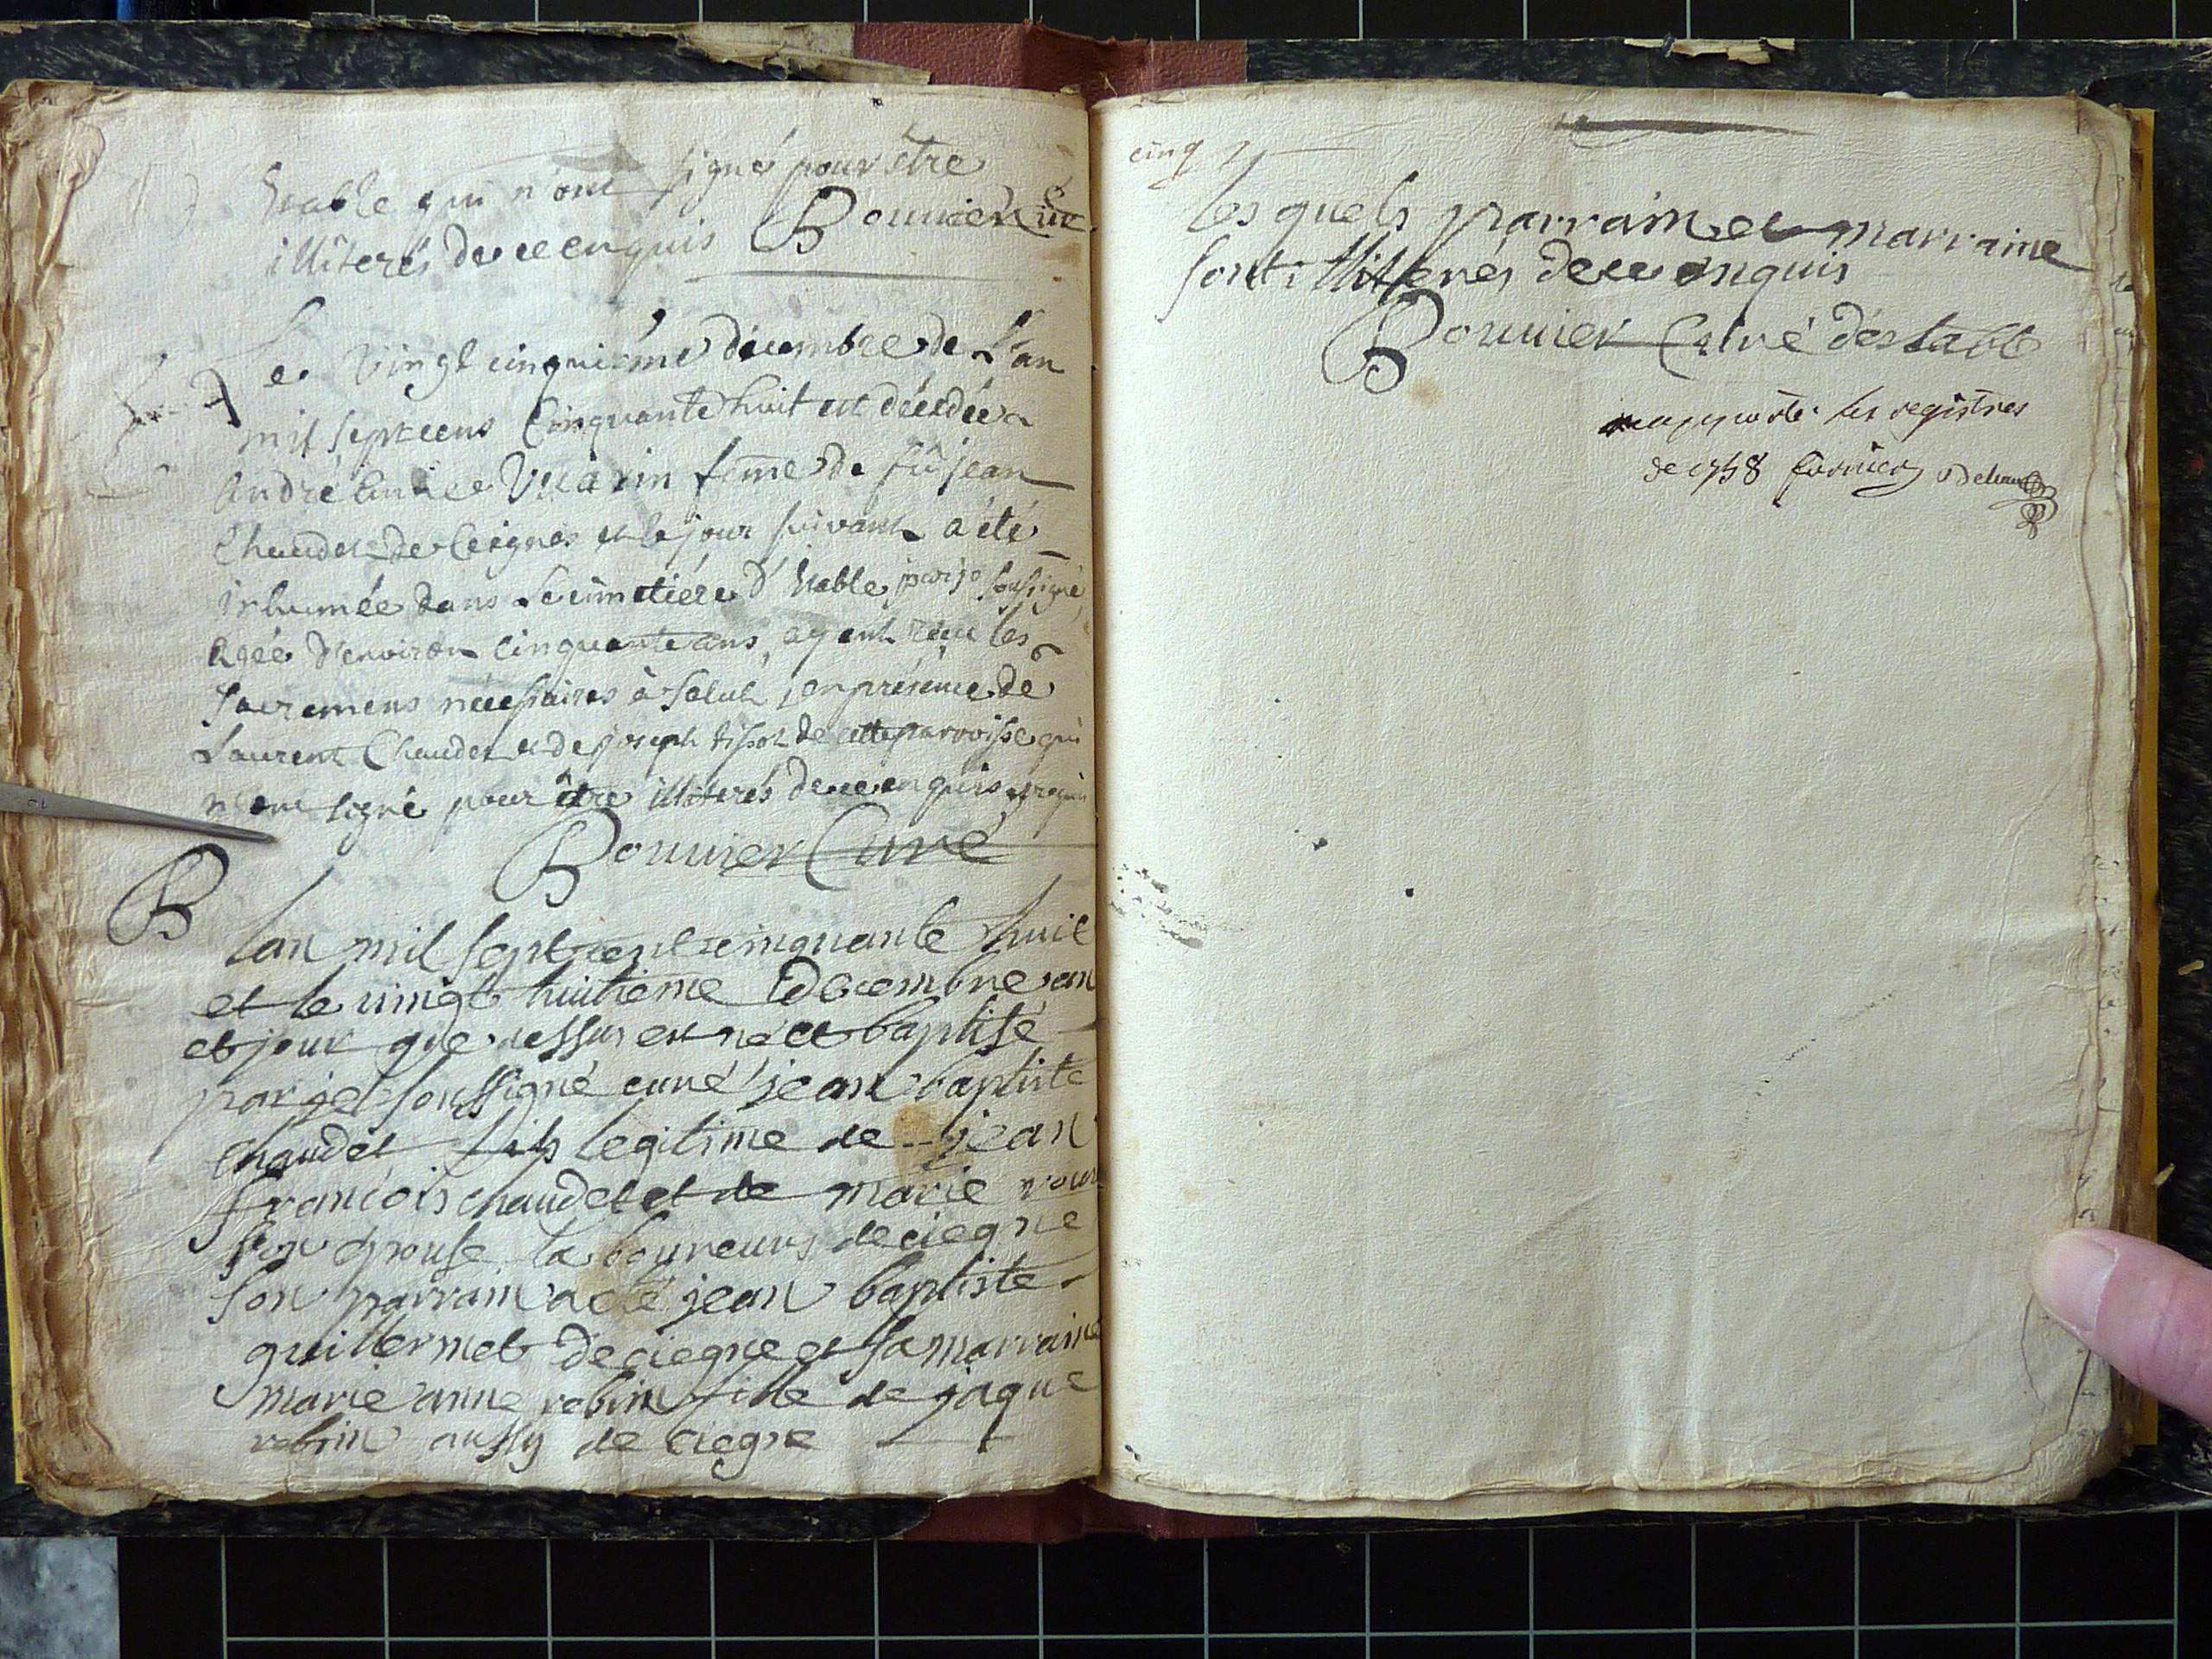 Étable qui n'ont signé pour être
illîterés de ce enquis Bouvier Curé
Le vingt cinquiéme décembre de l'an
mil septcens Cinquante huit est décédée
André femme de fû jean
Chaudet de Ceignes et le jour suivant a été
inhumée dans le cimetiére d'Étable par je soussigné,
agée d'environ cinquante ans, ayent reçu les
sacremens nécessaires à salut, en présence de
Laurent Chaudet et de joseph tissot de cette parroisse qui
n'ont signé pour être illiterés de ce enquis
Bouvier Curé
B
lan mil sept cent cinquante huit
et le vingt huitieme Decembre an
et jour que dessus est né et baptisé
par je soussigné curé jean baptiste
chaudet fils legitime de jean
francois chaudet et de marie
son epouse laboureurs de ciegne
son parrain a eté jean baptiste
guillermet de ciegne et sa marraine
marie anne robin fille de jaque
robin aussy de ciegne
cinq
les quels parrain et marraine
sont illitterés de ce enquis
Bouvier Curé déstable
apporté les registres
de 1758